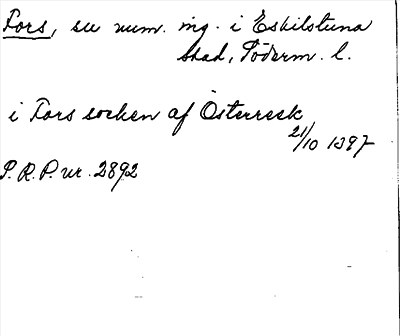 Fors, su num. ing. i Eskilstuna
stad, Söderm. l.
i Fors socken af Österreek
21/10 1397
P.R.P. nr. 2892